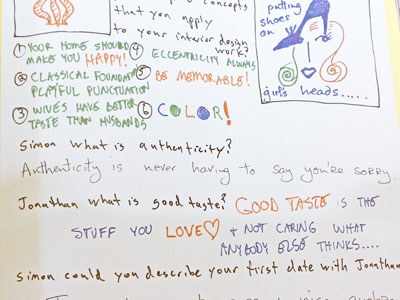 concepts
that you apply
to your interior design
work?
① YOUR HOME SHOULD
MAKE YOU HAPPY!
② CLASSICAL FOUNDATION
PLAYFUL PUNCTUATION
③ WIVES HAVE BETTER
TASTE THAN HUSBANDS
④ ECCENTRICITY ALWAYS
⑤ BE MEMORABLE!
⑥ COLOR!
putting
shoes
on
girl's heads.....
Simon what is authenticity?
Authenticity is never having to say you're sorry.
Jonathan what is good taste? GOOD TASTE IS THE
STUFF YOU LOVE♡ + NOT CARING WHAT
ANYBODY ELSE THINKS....
Simon could you describe your first date with Jonathan